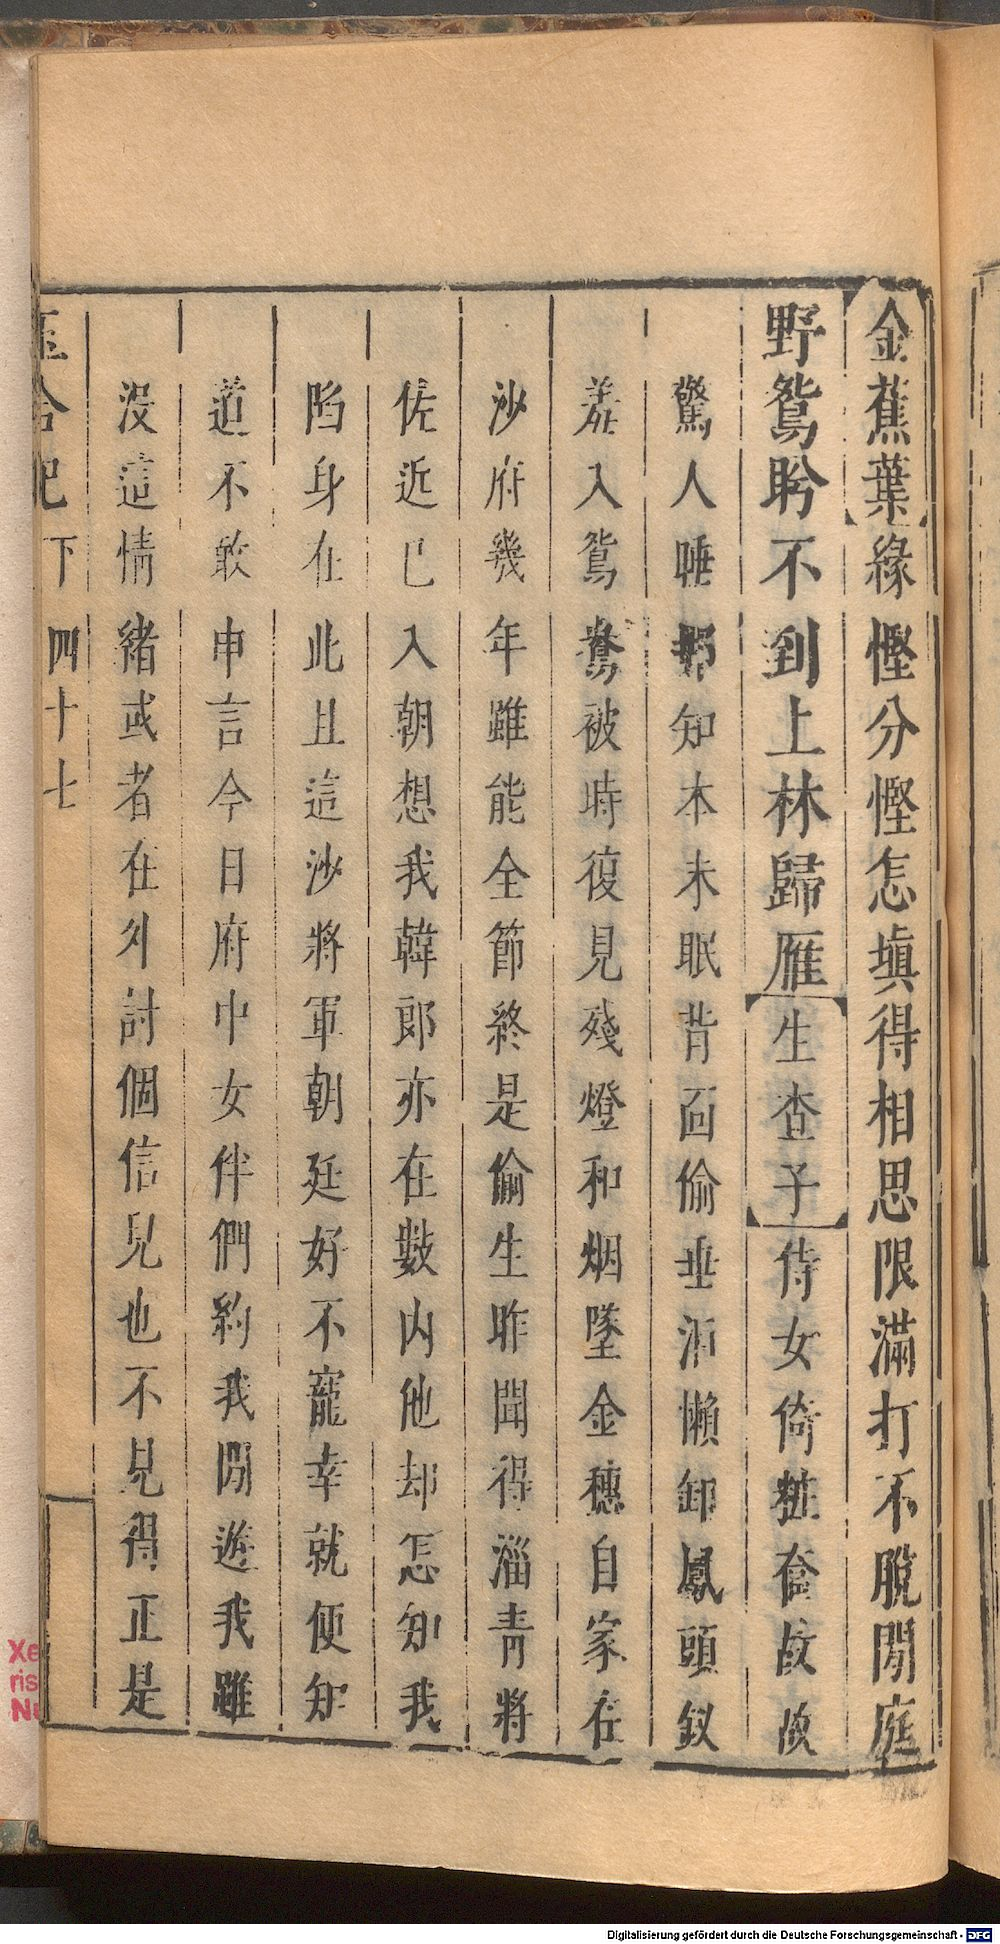 金蕉葉緣慳分慳怎填得相思限滿打不脫閒庭
野鴛盻不到上林歸雁生查子侍女倚粧奩故故
驚人睡那知本未眠背面偷垂淚懶卸鳳頭釵
羞入鴛鴦被時復見殘燈和烟墜金穗自家在
沙府幾年雖能全節終是偷生昨聞得淄青將
佐近已入朝想我韓郎亦在數內他却怎知我
陷身在此且這沙將軍朝廷好不寵幸就便知
道不敢申言今日府中女伴們約我閒遊我雖
沒這情緒或者在外討個信兒也不見得正是
玉合記下 四十七
Xe
ris
Nu
Digitalisierung gefördert durch die Deutsche Forschungsgemeinschaft - DFG